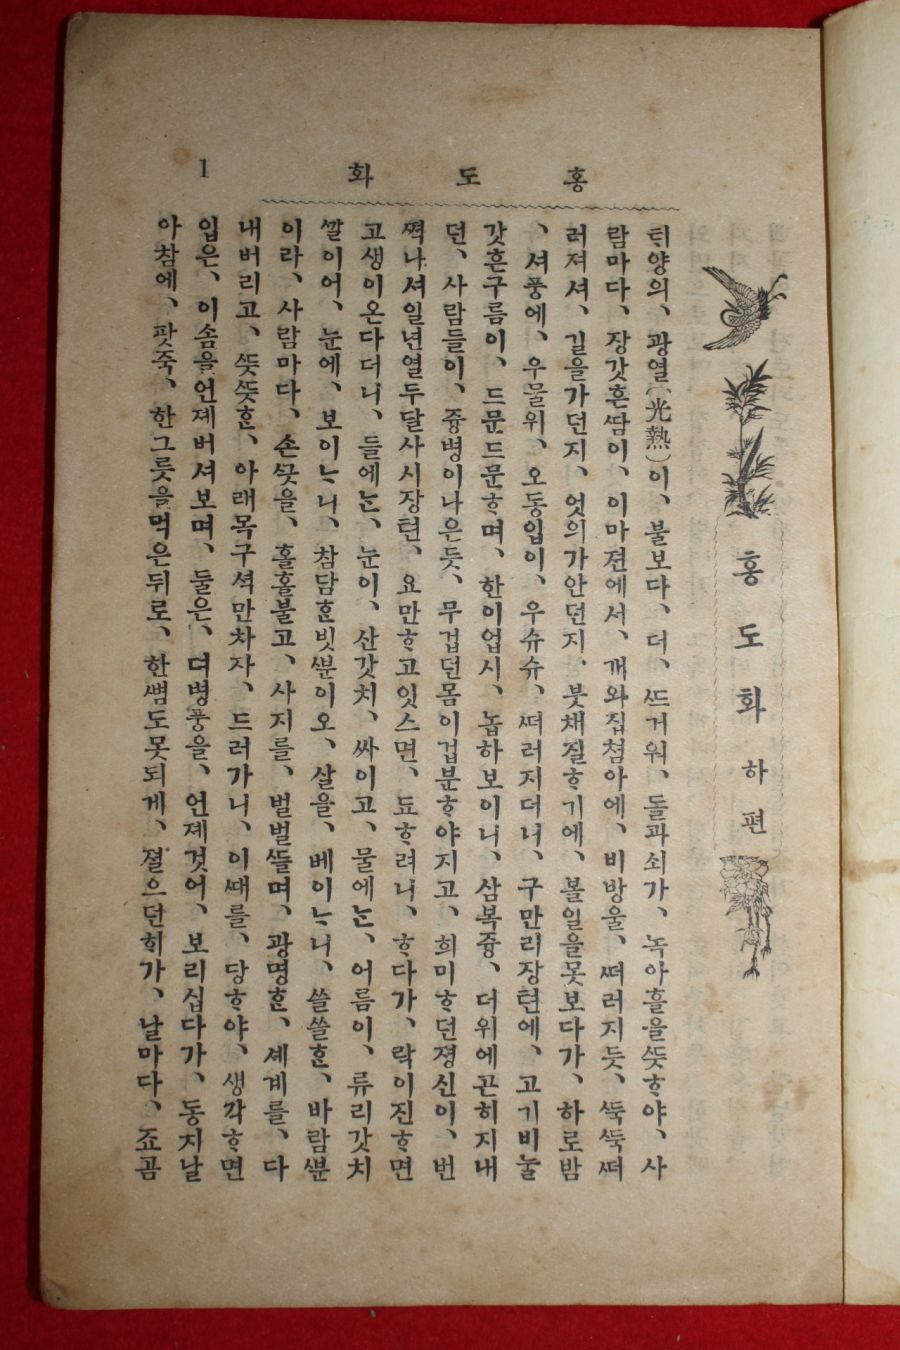 홍도화 하편
홍도화
1
틱양의、광열(光熱)이、불보다、더、ᄯᅳ거워、돌과쇠가、녹아흘을ᄯᅳᆺᄒᆞ야、사
람마다、장갓흔ᄯᅡᆷ이、이마젼에서、개와집쳠아에、비방울、ᄯᅥ러지듯、ᄯᅮᆨᄯᅮᆨᄯᅥ
러져셔、길을가던지、엇의가안던지、붓채질ᄒᆞ기에、볼일을못보다가、하로밤
、셔풍에、우물위、오동입이、우슈슈、ᄯᅥ러지더니、구만리장텬에、고기비눌
갓흔구름이、드문드문ᄒᆞ며、한이업시、놉하보이니、삼복즁、더위에곤히지내
던、사람들이、즁병이나은듯、무겁던몸이겁분ᄒᆞ야지고、희미ᄒᆞ던졍신이、번
ᄶᅥᆨ나셔일년열두달사시장텬、요만ᄒᆞ고잇스면、됴ᄒᆞ려니、ᄒᆞ다가、락이진ᄒᆞ면
고생이온다더니、들에ᄂᆞᆫ、눈이、산갓치、싸이고、물에ᄂᆞᆫ、어름이、류리갓치
ᄭᅡᆯ이어、눈에、보이ᄂᆞ니、참담ᄒᆞᆫ빗ᄲᅮᆫ이오、살을、베이ᄂᆞ니、쓸쓸ᄒᆞᆫ、바람ᄲᅮᆫ
이라、사람마다、손ᄭᅳᆺ을、홀홀불고、사지를、벌벌ᄯᅥᆯ며、광명ᄒᆞᆫ、셰계를、다
내버리고、ᄯᅳᆺᄯᅳᆺᄒᆞᆫ、아래목구셕만차자、드러가니、이ᄯᅢ를、당ᄒᆞ야、생각ᄒᆞ면
입은、이솜을언졔버셔보며、둘은、뎌병풍을、언졔것어、보리십다가、동지날
아참에、팟죽、한그릇을먹은뒤로、한ᄲᅧᆷ도못되게、졀으던ᄒᆡ가、날마다、죠곰